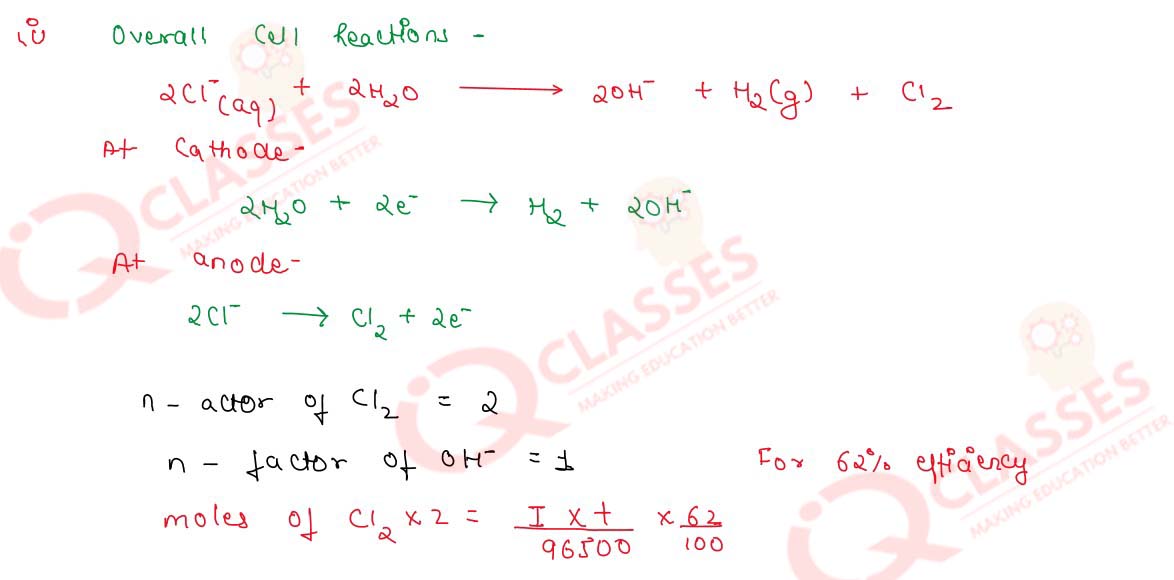 (i) Overall Cell Reactions -
2Cl⁻(aq) + 2H₂O ⟶ 2OH⁻ + H₂(g) + Cl₂
At Cathode-
2H₂O + 2e⁻ → H₂ + 2OH⁻
At anode-
2Cl⁻ → Cl₂ + 2e⁻
n - actor of Cl₂ = 2
n - factor of OH⁻ = 1
For 62% efficiency
moles of Cl₂ × 2 = I × t / 96500 × 62 / 100
CLASSES
MAKING EDUCATION BETTER
CLASSES
MAKING EDUCATION BETTER
CLASSES
MAKING EDUCATION BETTER